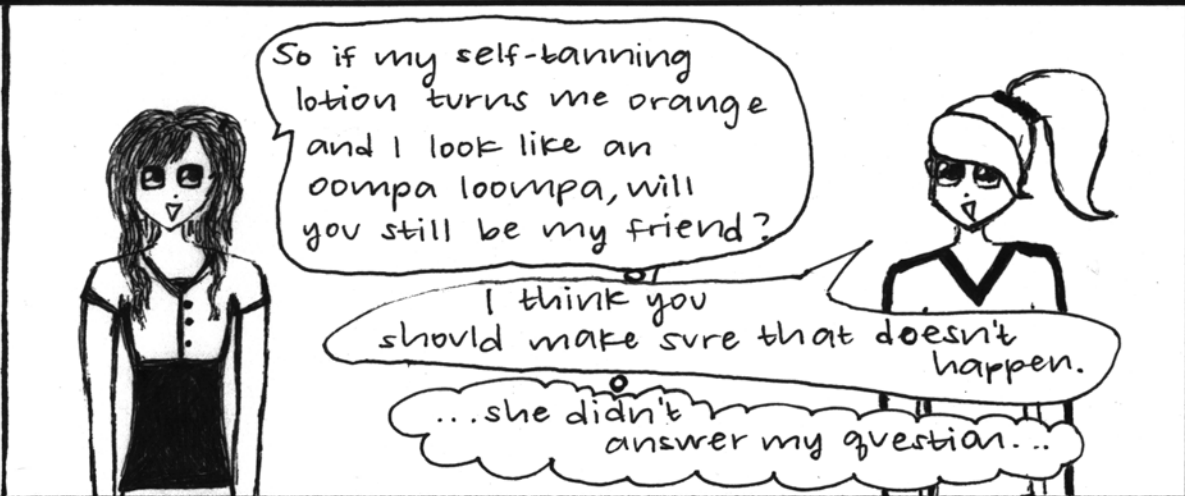 So if my self-tanning
lotion turns me orange
and I look like an
oompa loompa, will
you still be my friend?
I think you
should make sure that doesn't
happen.
...she didn't
answer my question...